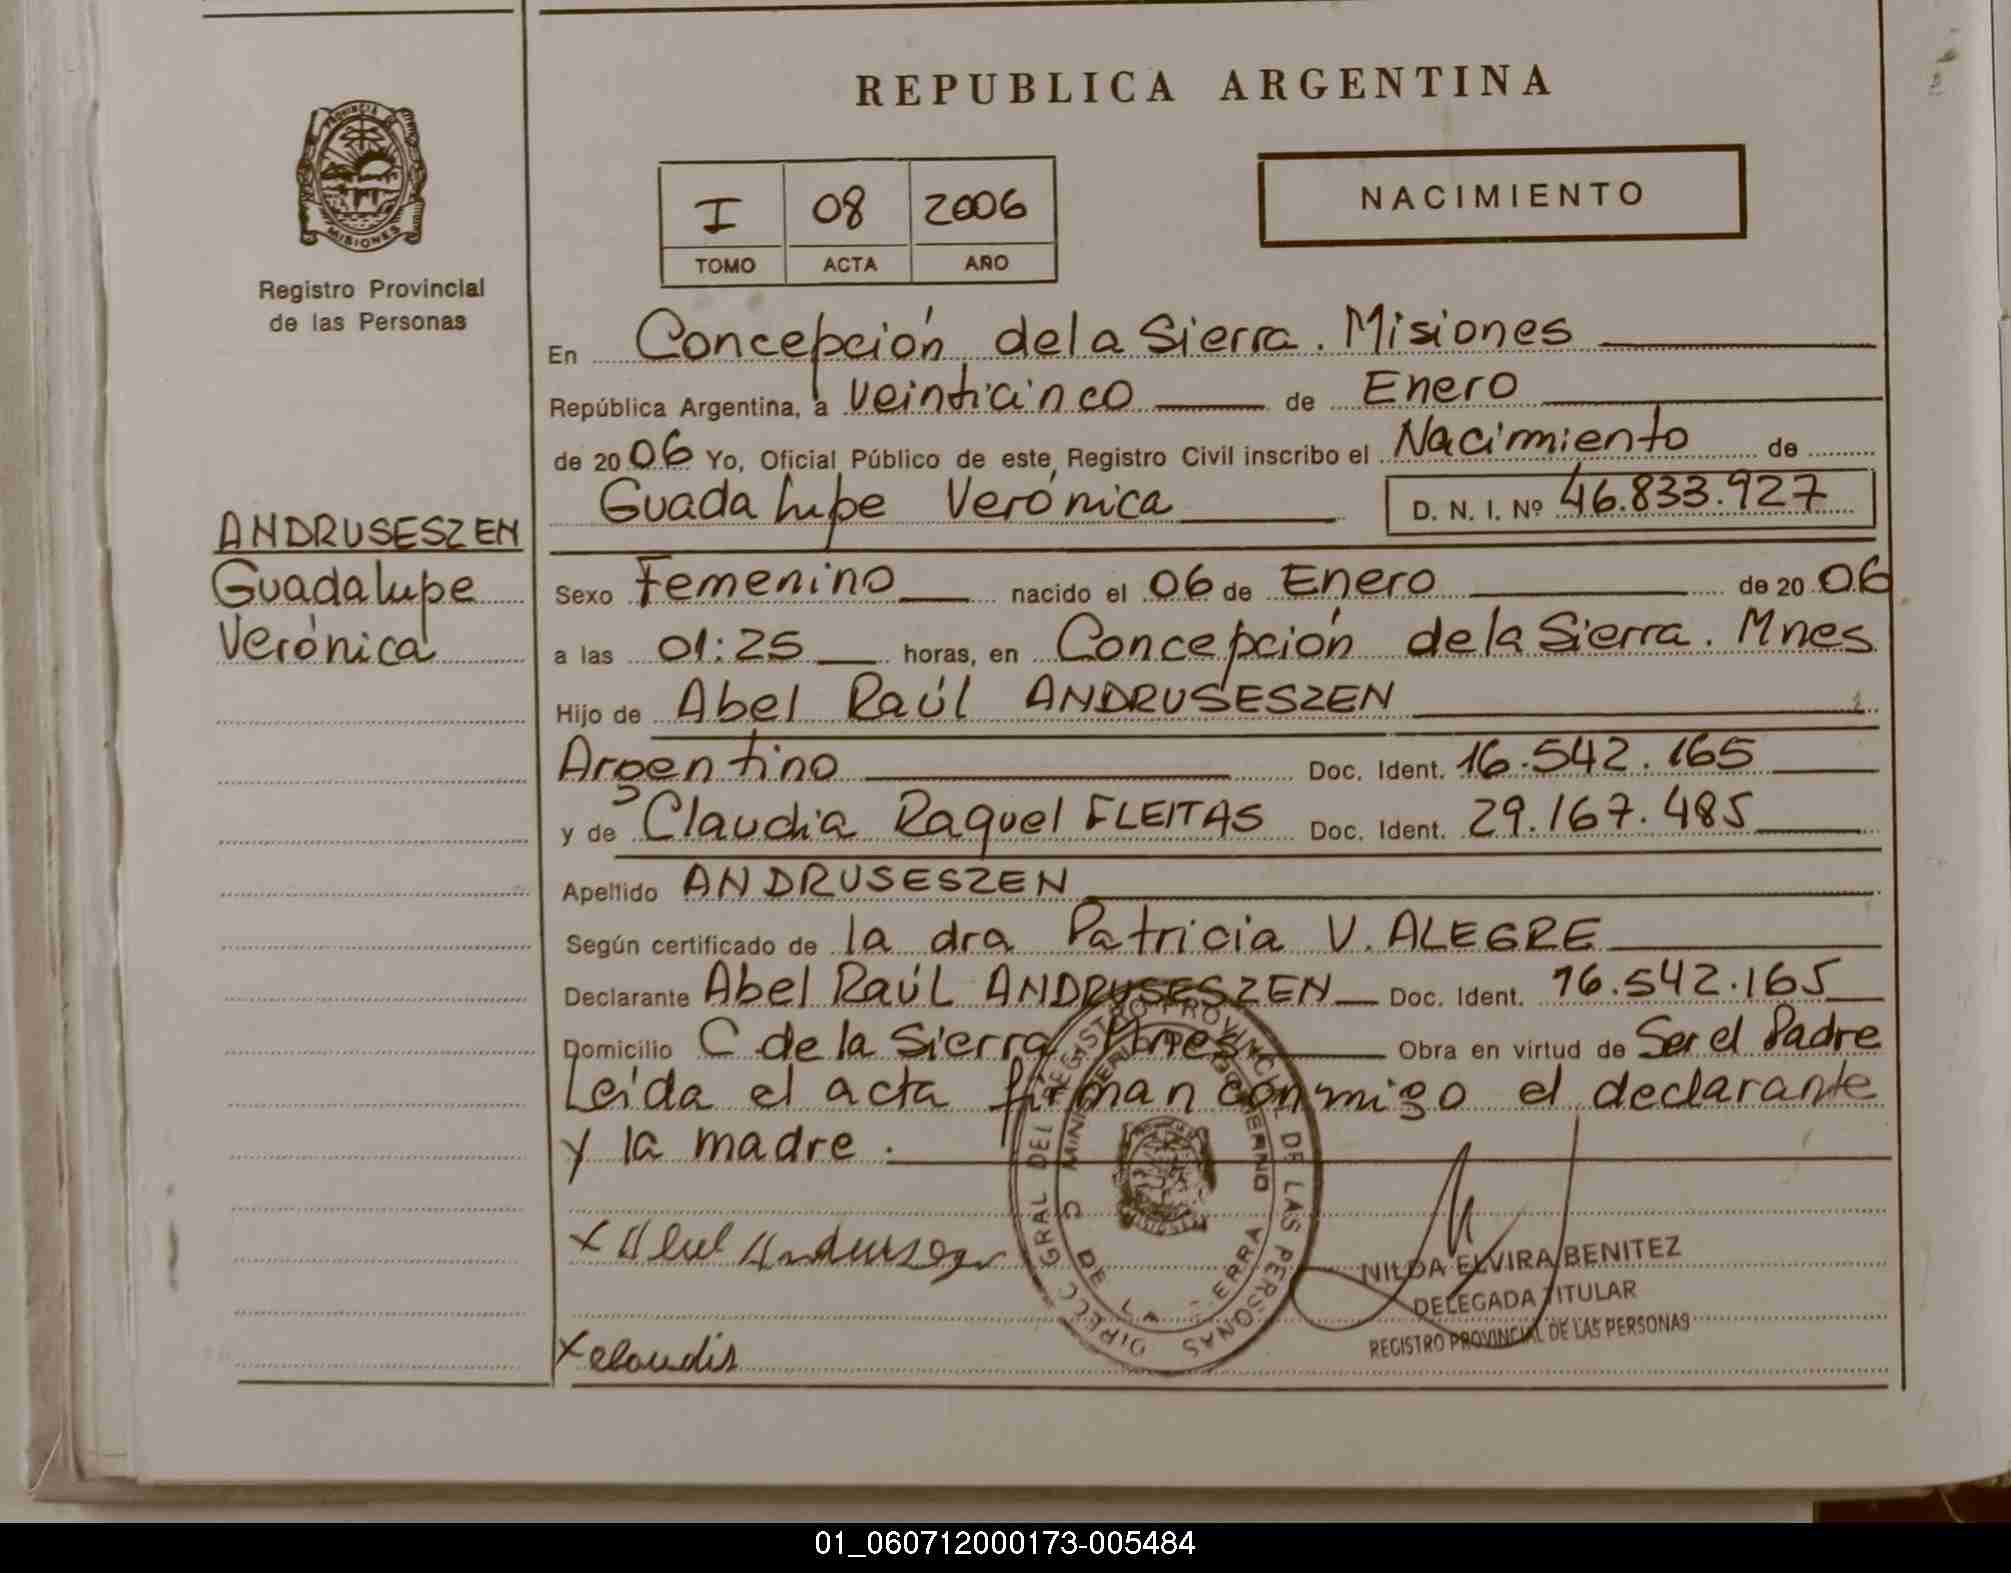 REPUBLICA ARGENTINA
PROVINCIA DE MISIONES
Registro Provincial
de las Personas
I 08 2006
TOMO ACTA AÑO
NACIMIENTO
ANDRUSESZEN
Guadalupe
Verónica
En Concepción de la Sierra. Misiones
República Argentina, a veinticinco de Enero
de 2006 Yo, Oficial Público de este Registro Civil inscribo el Nacimiento de
Guadalupe Verónica D. N. I. Nº 46.833.927
Sexo Femenino nacido el 06 de Enero de 2006
a las 01:25 horas, en Concepción de la Sierra. Mnes
Hijo de Abel Raúl ANDRUSESZEN
Argentino Doc. Ident. 16.542.165
y de Claudia Raquel FLEITAS Doc. Ident. 29.167.485
Apellido ANDRUSESZEN
Según certificado de la dra Patricia V. ALEGRE
Declarante Abel Raúl ANDRUSESZEN Doc. Ident. 16.542.165
Domicilio C de la Sierra Mnes Obra en virtud de Ser el Padre
Leida el acta firman conmigo el declarante
y la madre.
DIRECC GRAL DEL REGISTRO PROVINCIAL DE LAS PERSONAS
x Abel
x claudia
NILDA ELVIRA BENITEZ
DELEGADA TITULAR
REGISTRO PROVINCIAL DE LAS PERSONAS
01_060712000173-005484